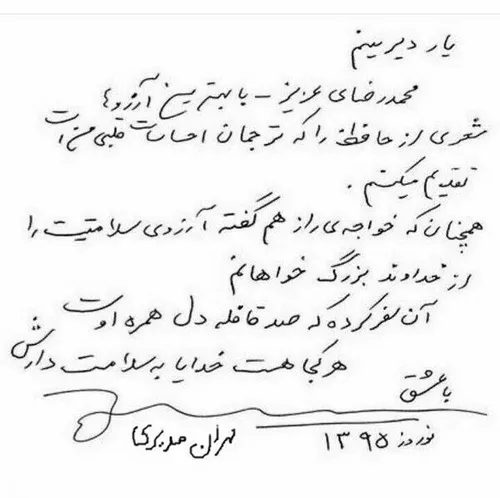 یار دیرینم
محمدرضای عزیز - با بهترین آرزوها
شعری از حافظ را که ترجمان احساسات قلبی من است
تقدیم میکنم.
همچنان که خواجه‌ی راز هم گفته آرزوی سلامتیت را
از خداوند بزرگ خواهانم
آن سفر کرده که صد قافله دل همره اوست
هر کجا هست خدایا به سلامت دارش
با عشق
مهران مدیری
نوروز ۱۳۹۵